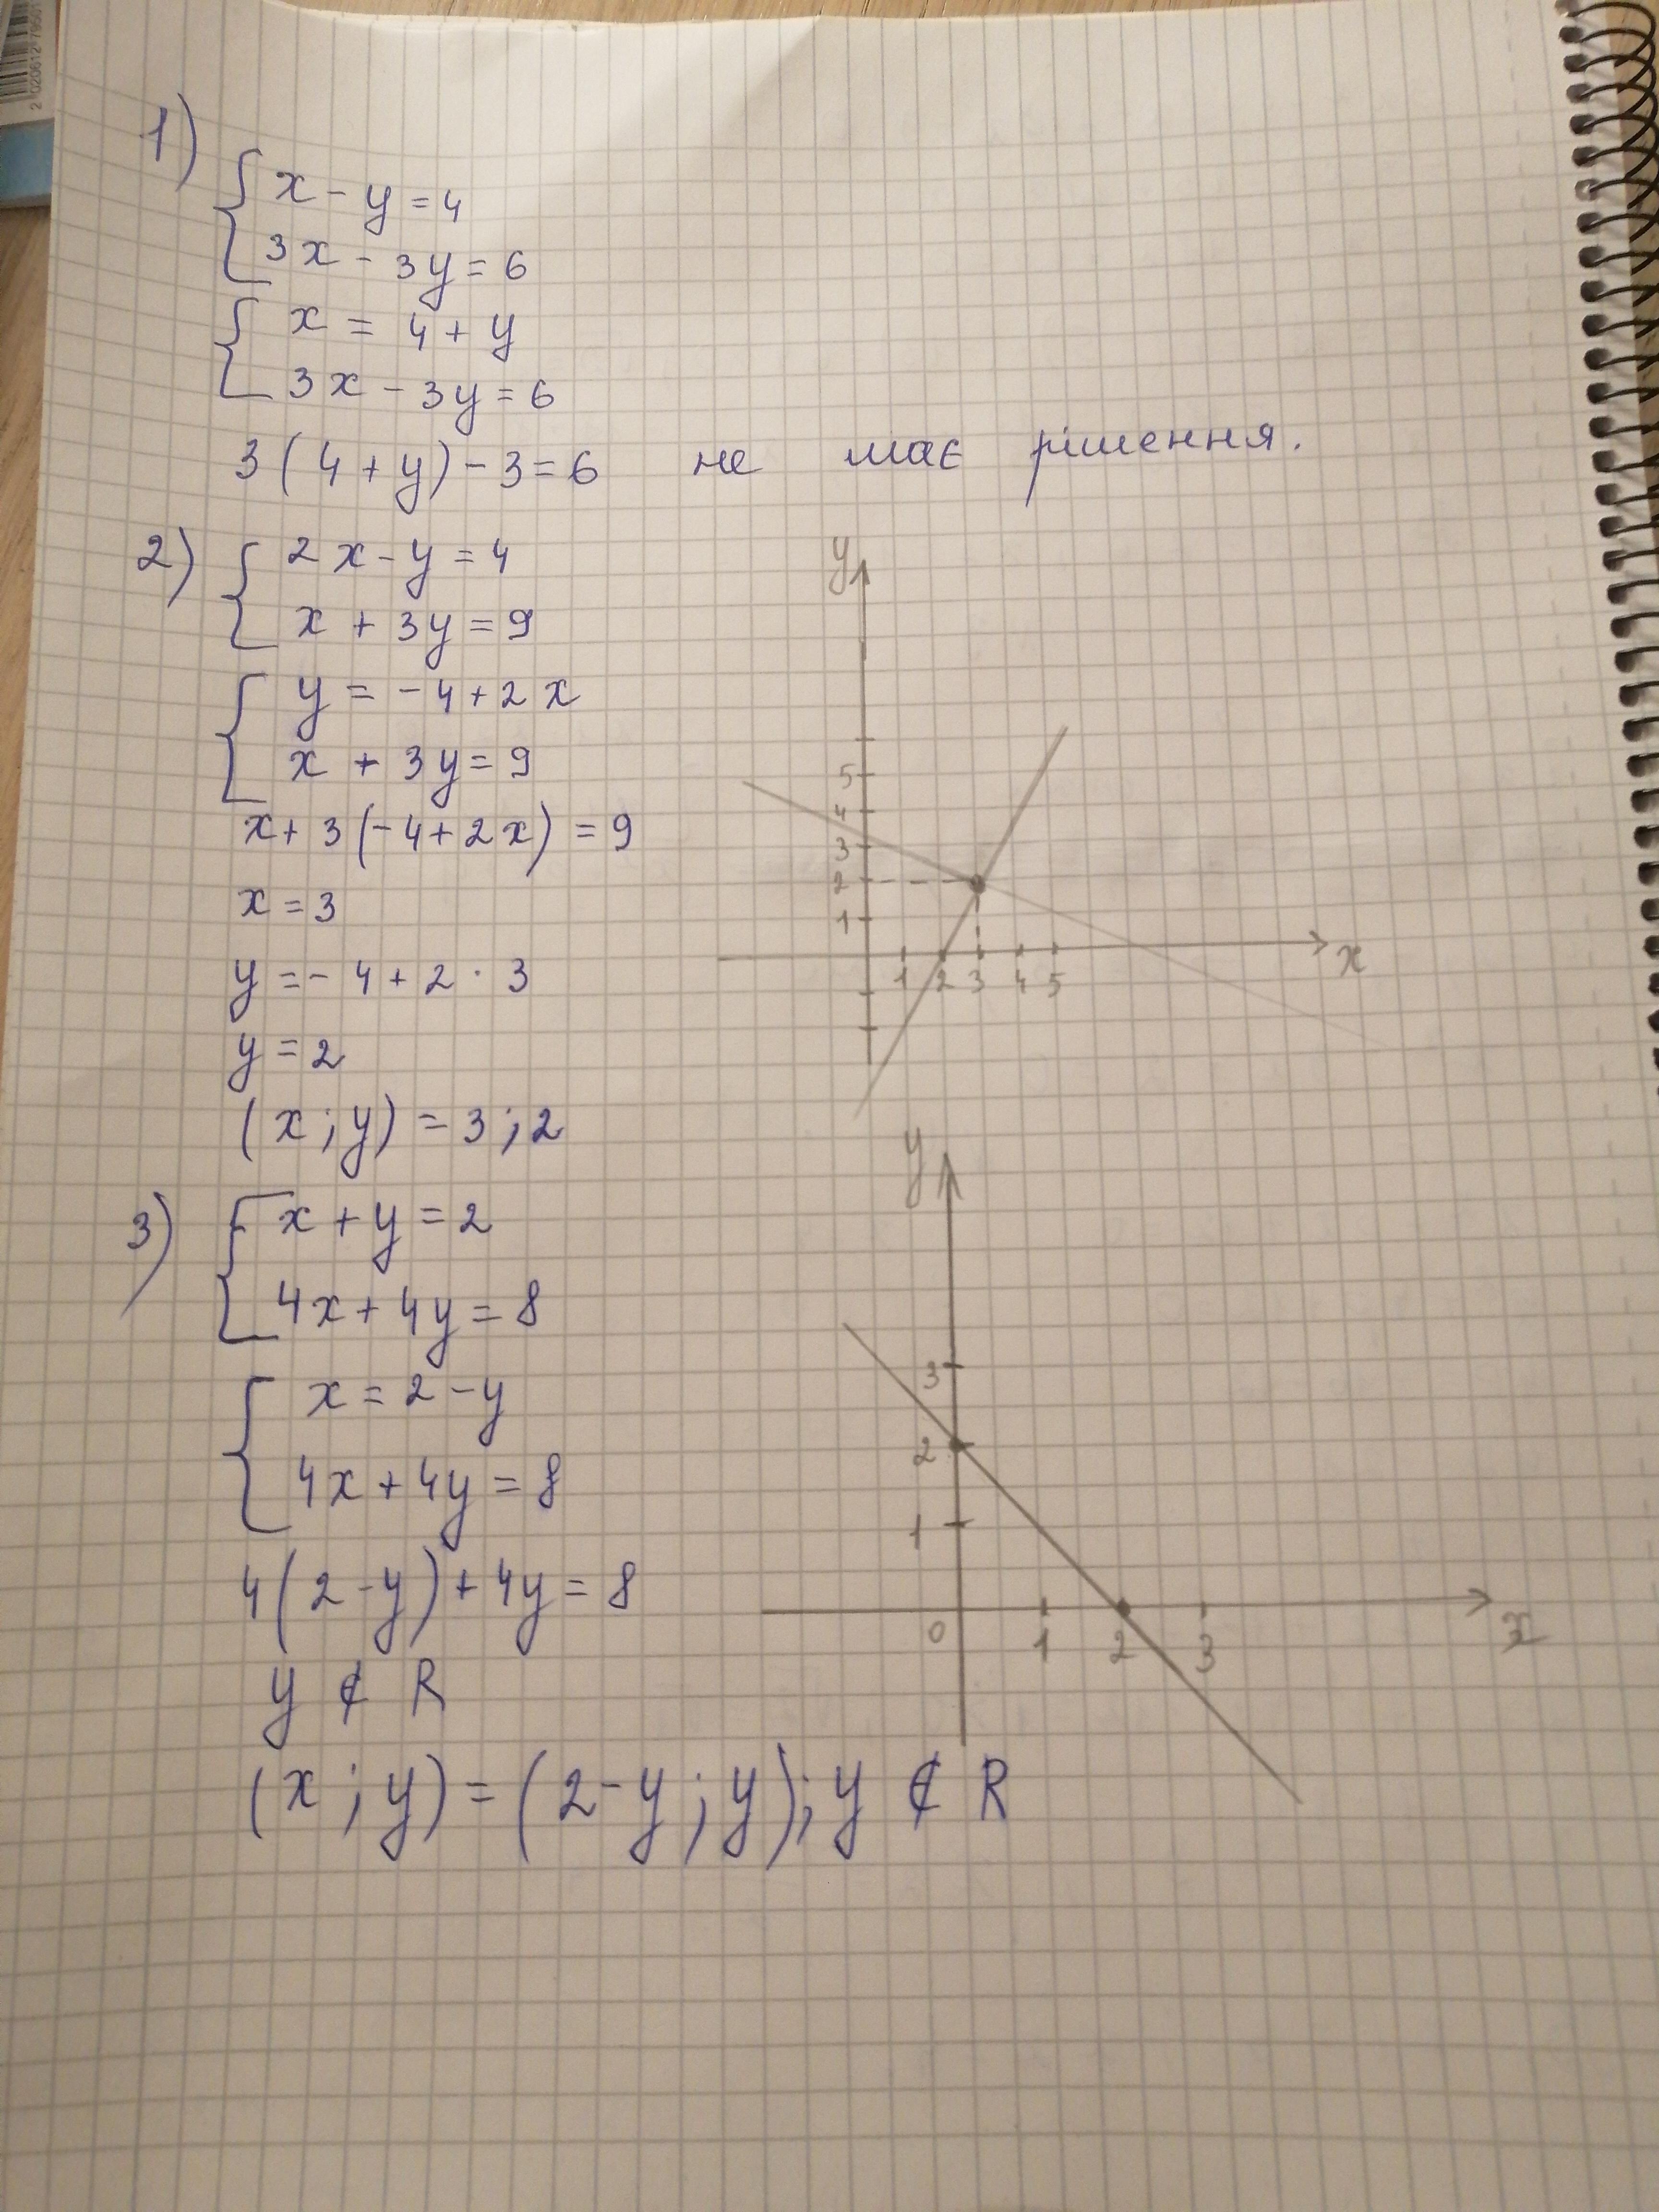 1)
x - y = 4
3x - 3y = 6
x = 4 + y
3x - 3y = 6
3(4 + y) - 3 = 6 не має рішення.
2)
2x - y = 4
x + 3y = 9
y = -4 + 2x
x + 3y = 9
x + 3(-4 + 2x) = 9
x = 3
y = -4 + 2 · 3
y = 2
(x ; y) = 3 ; 2
y
5
4
3
2
1
1 2 3 4 5
x
3)
x + y = 2
4x + 4y = 8
x = 2 - y
4x + 4y = 8
4(2 - y) + 4y = 8
y ∉ R
(x ; y) = (2 - y ; y); y ∉ R
y
3
2
1
0 1 2 3
x